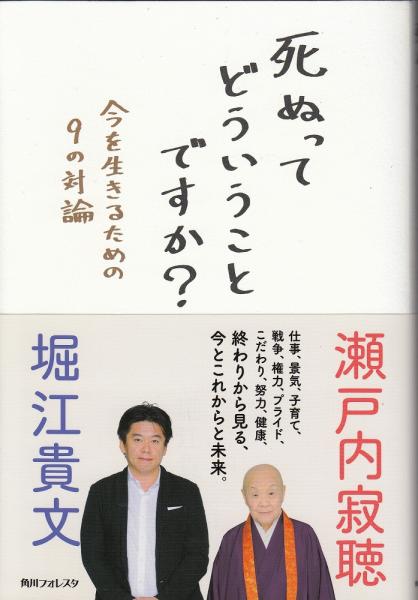 死ぬって
どういうこと
ですか?
今を生きるための
9の対論
瀬戸内寂聴
仕事、景気、子育て、
戦争、権力、プライド、
こだわり、努力、健康、
終わりから見る、
今とこれからと未来。
堀江貴文
角川フォレスタ